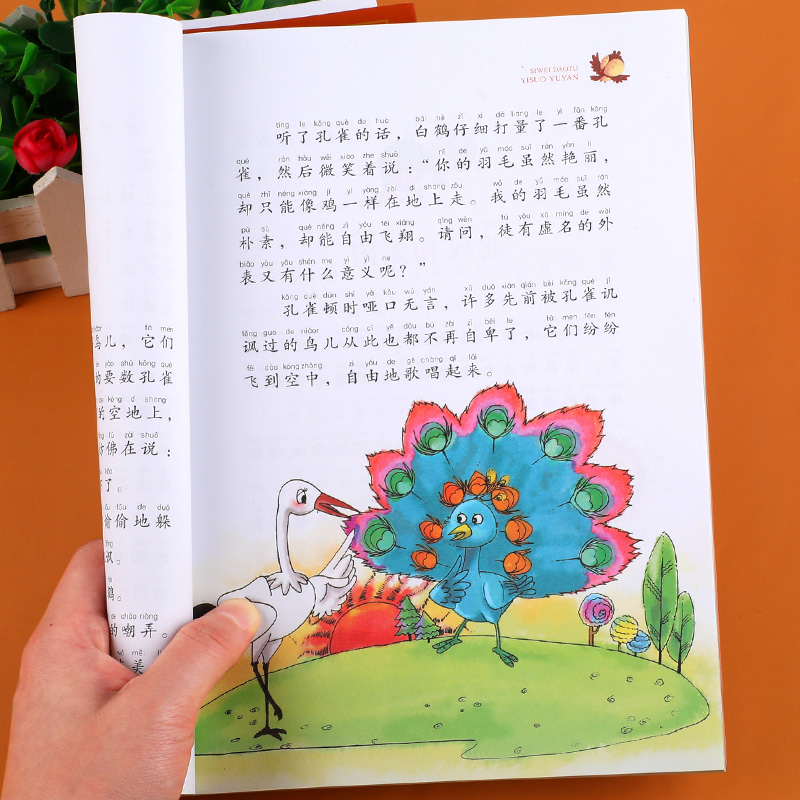 tā men
儿，它们
yào shǔ kǒng què
的要数孔雀
kòng dì shang
的空地上，
fú zài shuō
仿佛在说：
了。
tōu de duǒ
偷偷地躲
讽。
鹤。
de cháo nòng
的嘲弄。
美
SIWEI DAOTU
YISUO YUYAN
tīng le kǒng què de huà bái hè zǐ xì dǎ liang le yì fān kǒng
听了孔雀的话，白鹤仔细打量了一番孔
què rán hòu wēi xiào zhe shuō nǐ de yǔ máo suī rán yàn lì
雀，然后微笑着说：“你的羽毛虽然艳丽，
què zhǐ néng xiàng jī yí yàng zài dì shang zǒu wǒ de yǔ máo suī rán
却只能像鸡一样在地上走。我的羽毛虽然
pǔ sù què néng zì yóu fēi xiáng qǐng wèn tú yǒu xū míng de wài
朴素，却能自由飞翔。请问，徒有虚名的外
biǎo yòu yǒu shén me yì yì ne
表又有什么意义呢？”
kǒng què dùn shí yǎ kǒu wú yán xǔ duō xiān qián bèi kǒng què jī
孔雀顿时哑口无言，许多先前被孔雀讥
fěng guo de niǎor cóng cǐ yě dōu bú zài zì bēi le tā men fēn fēn
讽过的鸟儿从此也都不再自卑了，它们纷纷
fēi dào kōng zhōng zì yóu de gē chàng qǐ lái
飞到空中，自由地歌唱起来。